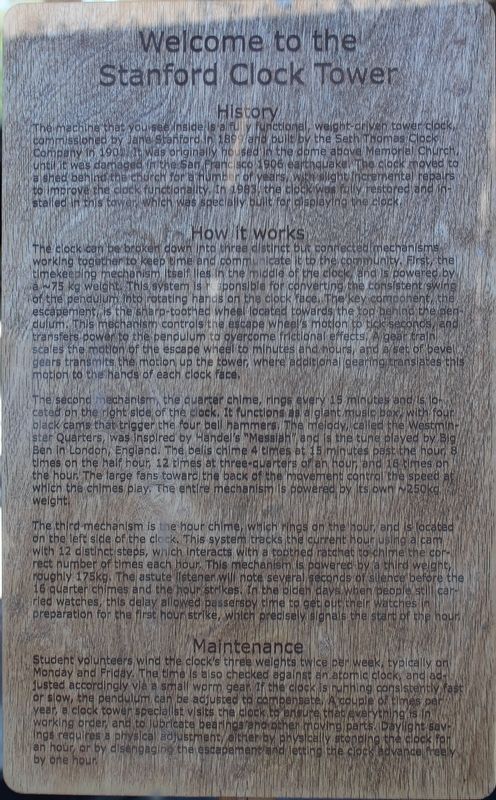 Welcome to the
Stanford Clock Tower
History
The machine that you see inside is a fully functional, weight-driven tower clock,
commissioned by Jane Stanford in 1899 and built by the Seth Thomas Clock
Company in 1901. It was originally housed in the dome above Memorial Church,
until it was damaged in the San Francisco 1906 earthquake. The clock moved to
a shed behind the church for a number of years, with slight incremental repairs
to improve the clock functionality. In 1983, the clock was fully restored and in-
stalled in this tower, which was specially built for displaying the clock.
How it works
The clock can be broken down into three distinct but connected mechanisms
working together to keep time and communicate it to the community. First, the
timekeeping mechanism itself lies in the middle of the clock, and is powered by
a ~75 kg weight. This system is responsible for converting the consistent swing
of the pendulum into rotating hands on the clock face. The key component, the
escapement, is the sharp-toothed wheel located towards the top behind the pen-
dulum. This mechanism controls the escape wheel's motion to tick seconds, and
transfers power to the pendulum to overcome frictional effects. A gear train
scales the motion of the escape wheel to minutes and hours, and a set of bevel
gears transmits the motion up the tower, where additional gearing translates this
motion to the hands of each clock face.
The second mechanism, the quarter chime, rings every 15 minutes and is lo-
cated on the right side of the clock. It functions as a giant music box, with four
black cams that trigger the four bell hammers. The melody, called the Westmin-
ster Quarters, was inspired by Handel's "Messiah" and is the tune played by Big
Ben in London, England. The bells chime 4 times at 15 minutes past the hour, 8
times on the half hour, 12 times at three-quarters of an hour, and 16 times on
the hour. The large fans toward the back of the movement control the speed at
which the chimes play. The entire mechanism is powered by its own ~250kg
weight.
The third mechanism is the hour chime, which rings on the hour, and is located
on the left side of the clock. This system tracks the current hour using a cam
with 12 distinct steps, which interacts with a toothed ratchet to chime the cor-
rect number of times each hour. This mechanism is powered by a third weight,
roughly 175kg. The astute listener will note several seconds of silence before the
16 quarter chimes and the hour strikes. In the olden days when people still car-
ried watches, this delay allowed passersby time to get out their watches in
preparation for the first hour strike, which precisely signals the start of the hour.
Maintenance
Student volunteers wind the clock's three weights twice per week, typically on
Monday and Friday. The time is also checked against an atomic clock, and ad-
justed accordingly via a small worm gear. If the clock is running consistently fast
or slow, the pendulum can be adjusted to compensate. A couple of times per
year, a clock tower specialist visits the clock to ensure that everything is in
working order, and to lubricate bearings and other moving parts. Daylight sav-
ings requires a physical adjustment, either by physically stopping the clock for
an hour, or by disengaging the escapement and letting the clock advance freely
by one hour.